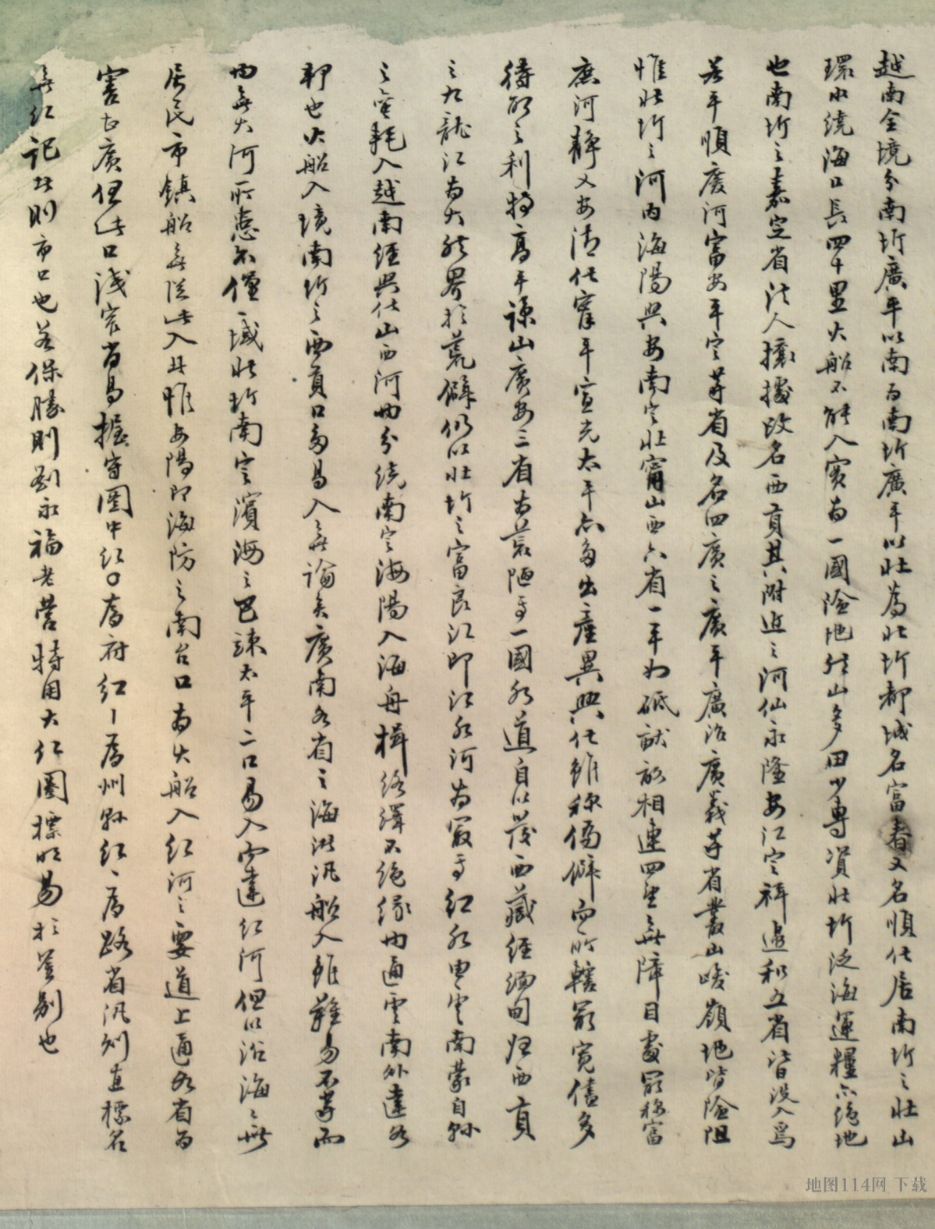 越南全境分南圻廣平以南為南圻廣平以北為北圻都城名富春又名順化居南圻之北山
環水繞海口長四十里大船不能入實為一國險地然山多田少專資北圻泛海運糧亦瘠地
也南圻之嘉定省法人攘據改名西貢其附近之河仙永隆安江定祥邊和五省皆沒入焉
若平順慶河富安平定等省及名四廣之廣平廣治廣義等省叢山峻嶺地皆險阻
惟北圻之河內海陽興安南定北寧山西六省一平如砥畎畝相連四望無障目最富
庶河靜乂安清化寧平宣光太平亦多出產異興化雖稱偏僻而所轄最寬儘多
待闢之利特高平諒山廣安三省為荒陋耳一國水道自以發西藏經緬甸歸西貢
之九龍江為大然界於荒僻仍以北圻之富良江即江水河為最耳紅水由雲南蒙自縣
之蠻耗入越南經興化山西河內分繞南定海陽入海舟楫絡繹不絕緣內通雲南外達各
郡也大船入境南圻之西貢口易入無論矣廣南各省之海汊汎船入雖難易不等而
內無大河所患不僅一域北圻南定濱海之巴辣太平二口易入而達紅河但以沿海之無
居民市鎮船無從此入耳惟安陽即海防之南台口為大船入紅河之要道上通各省為
害甚廣但此口淺窄尚易握守圖中紅口為府紅丨為州縣紅、為路省汛則直標名
無紅記者則市口也若保勝則劉永福老營特用大紅圈標明易於鑒別也
地图114网 下载